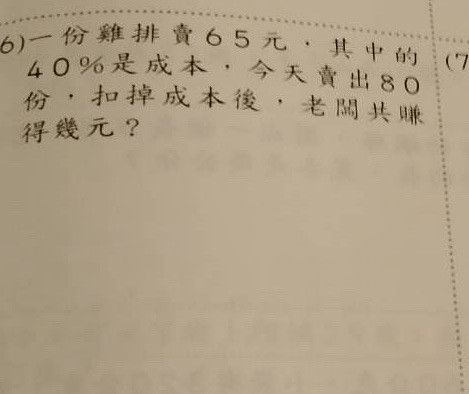 6)一份雞排賣65元，其中的
40%是成本，今天賣出80
份，扣掉成本後，老闆共賺
得幾元？
(7